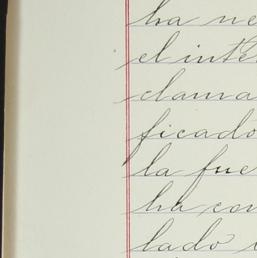 ha ne
el inte
clama
ficado
la fue
ha con
lado